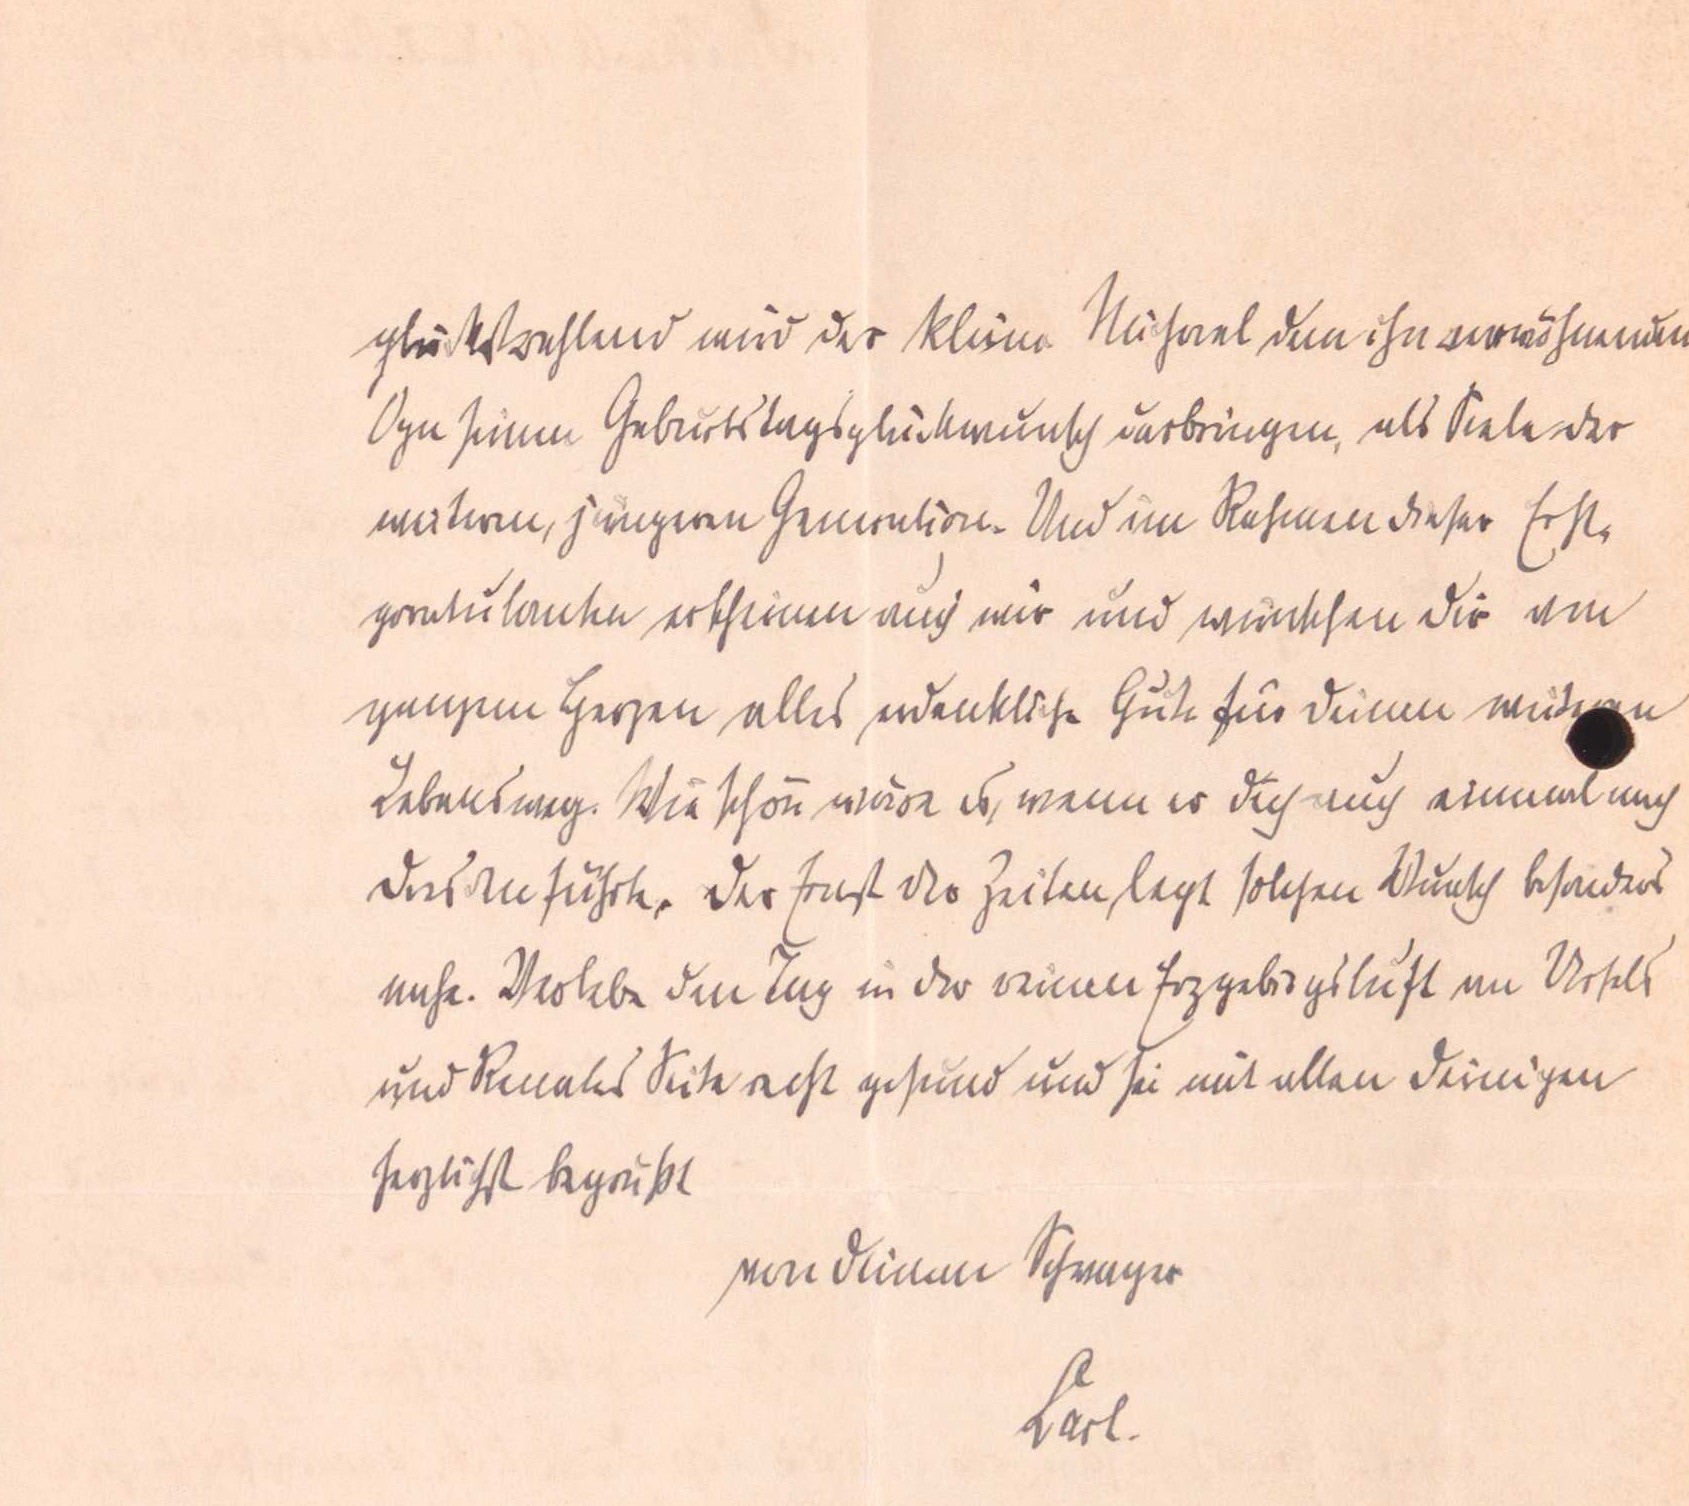 glückstrahlend wird der kleine Michael dem ihn verwöhnenden
Opa seinen Geburtstagsglückwunsch darbringen, als Seele der
weiteren, jüngeren Generation. Und im Rahmen dieser Erst-
gratulanten erscheinen auch wir und wünschen Dir von
ganzem Herzen alles erdenkliche Gute für Deinen weiteren
Lebensweg. Wie schön wäre es, wenn er Dich auch einmal nach
Dresden führte. Der Ernst der Zeiten legt solchen Wunsch besonders
nahe. Verlebe den Tag in der reinen Erzgebirgsluft an Ursels
und Renates Seite recht gesund und sei mit allen Deinigen
herzlichst begrüßt
von Deinem Schwager
Karl.